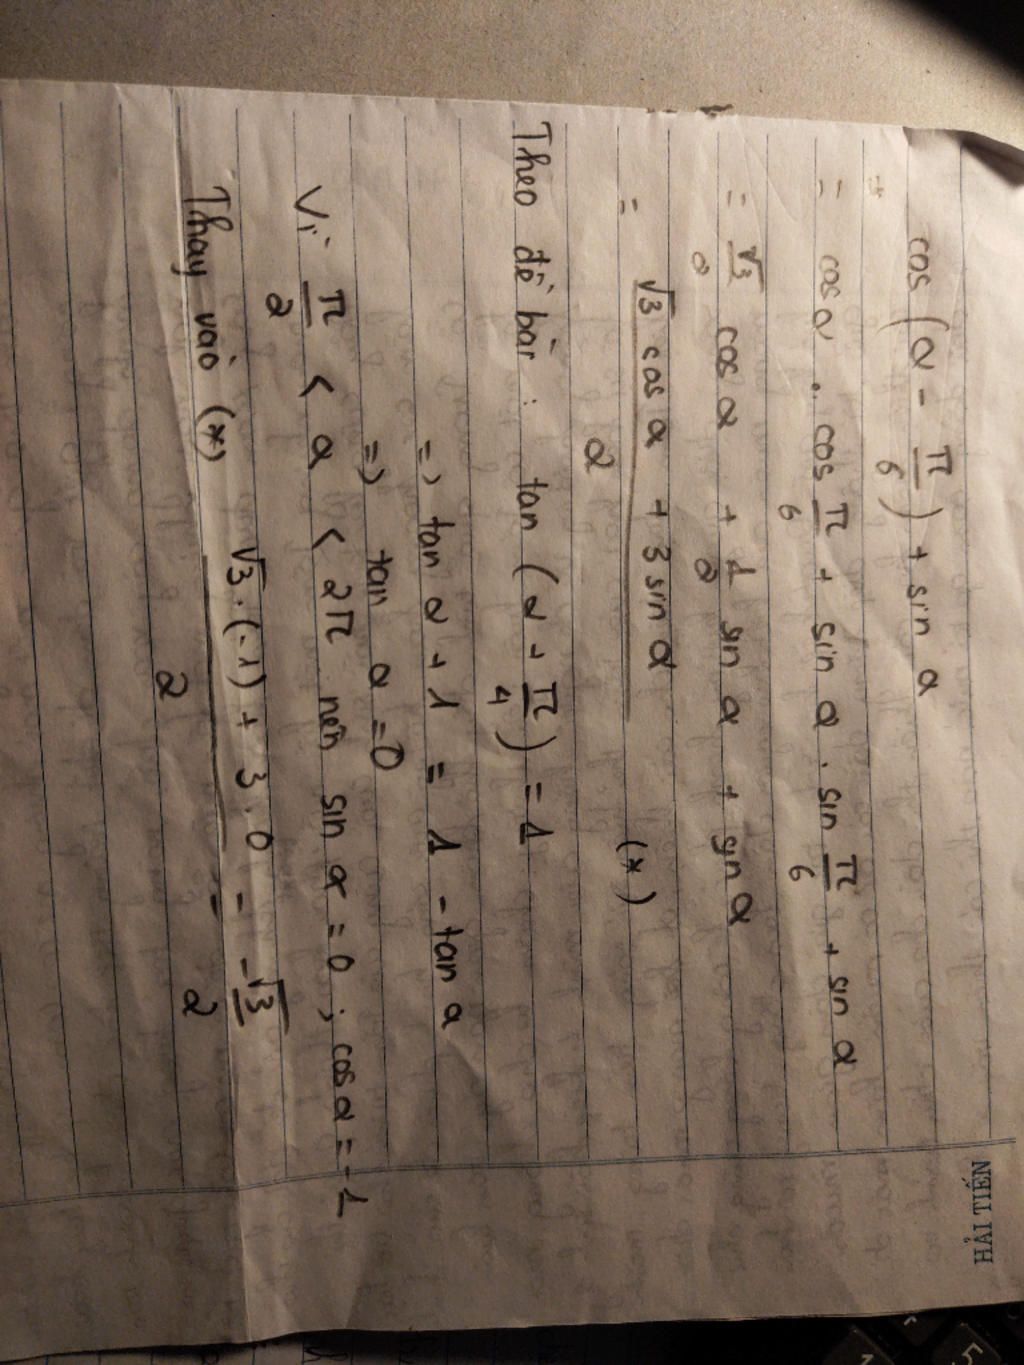 HẢI TIẾN
cos (α - π/6) + sin α
= cos α . cos π/6 + sin α . sin π/6 + sin α
= √3/2 cos α + 1/2 sin α + sin α
= (√3 cos α + 3 sin α)/2 (*)
Theo đề bài : tan (α + π/4) = 1
=) tan α + 1 = 1 - tan α
=) tan α = 0
Vì π/2 < α < 2π nên sin α = 0 ; cos α = -1
Thay vào (*) (√3 . (-1) + 3 . 0)/2 = -√3/2